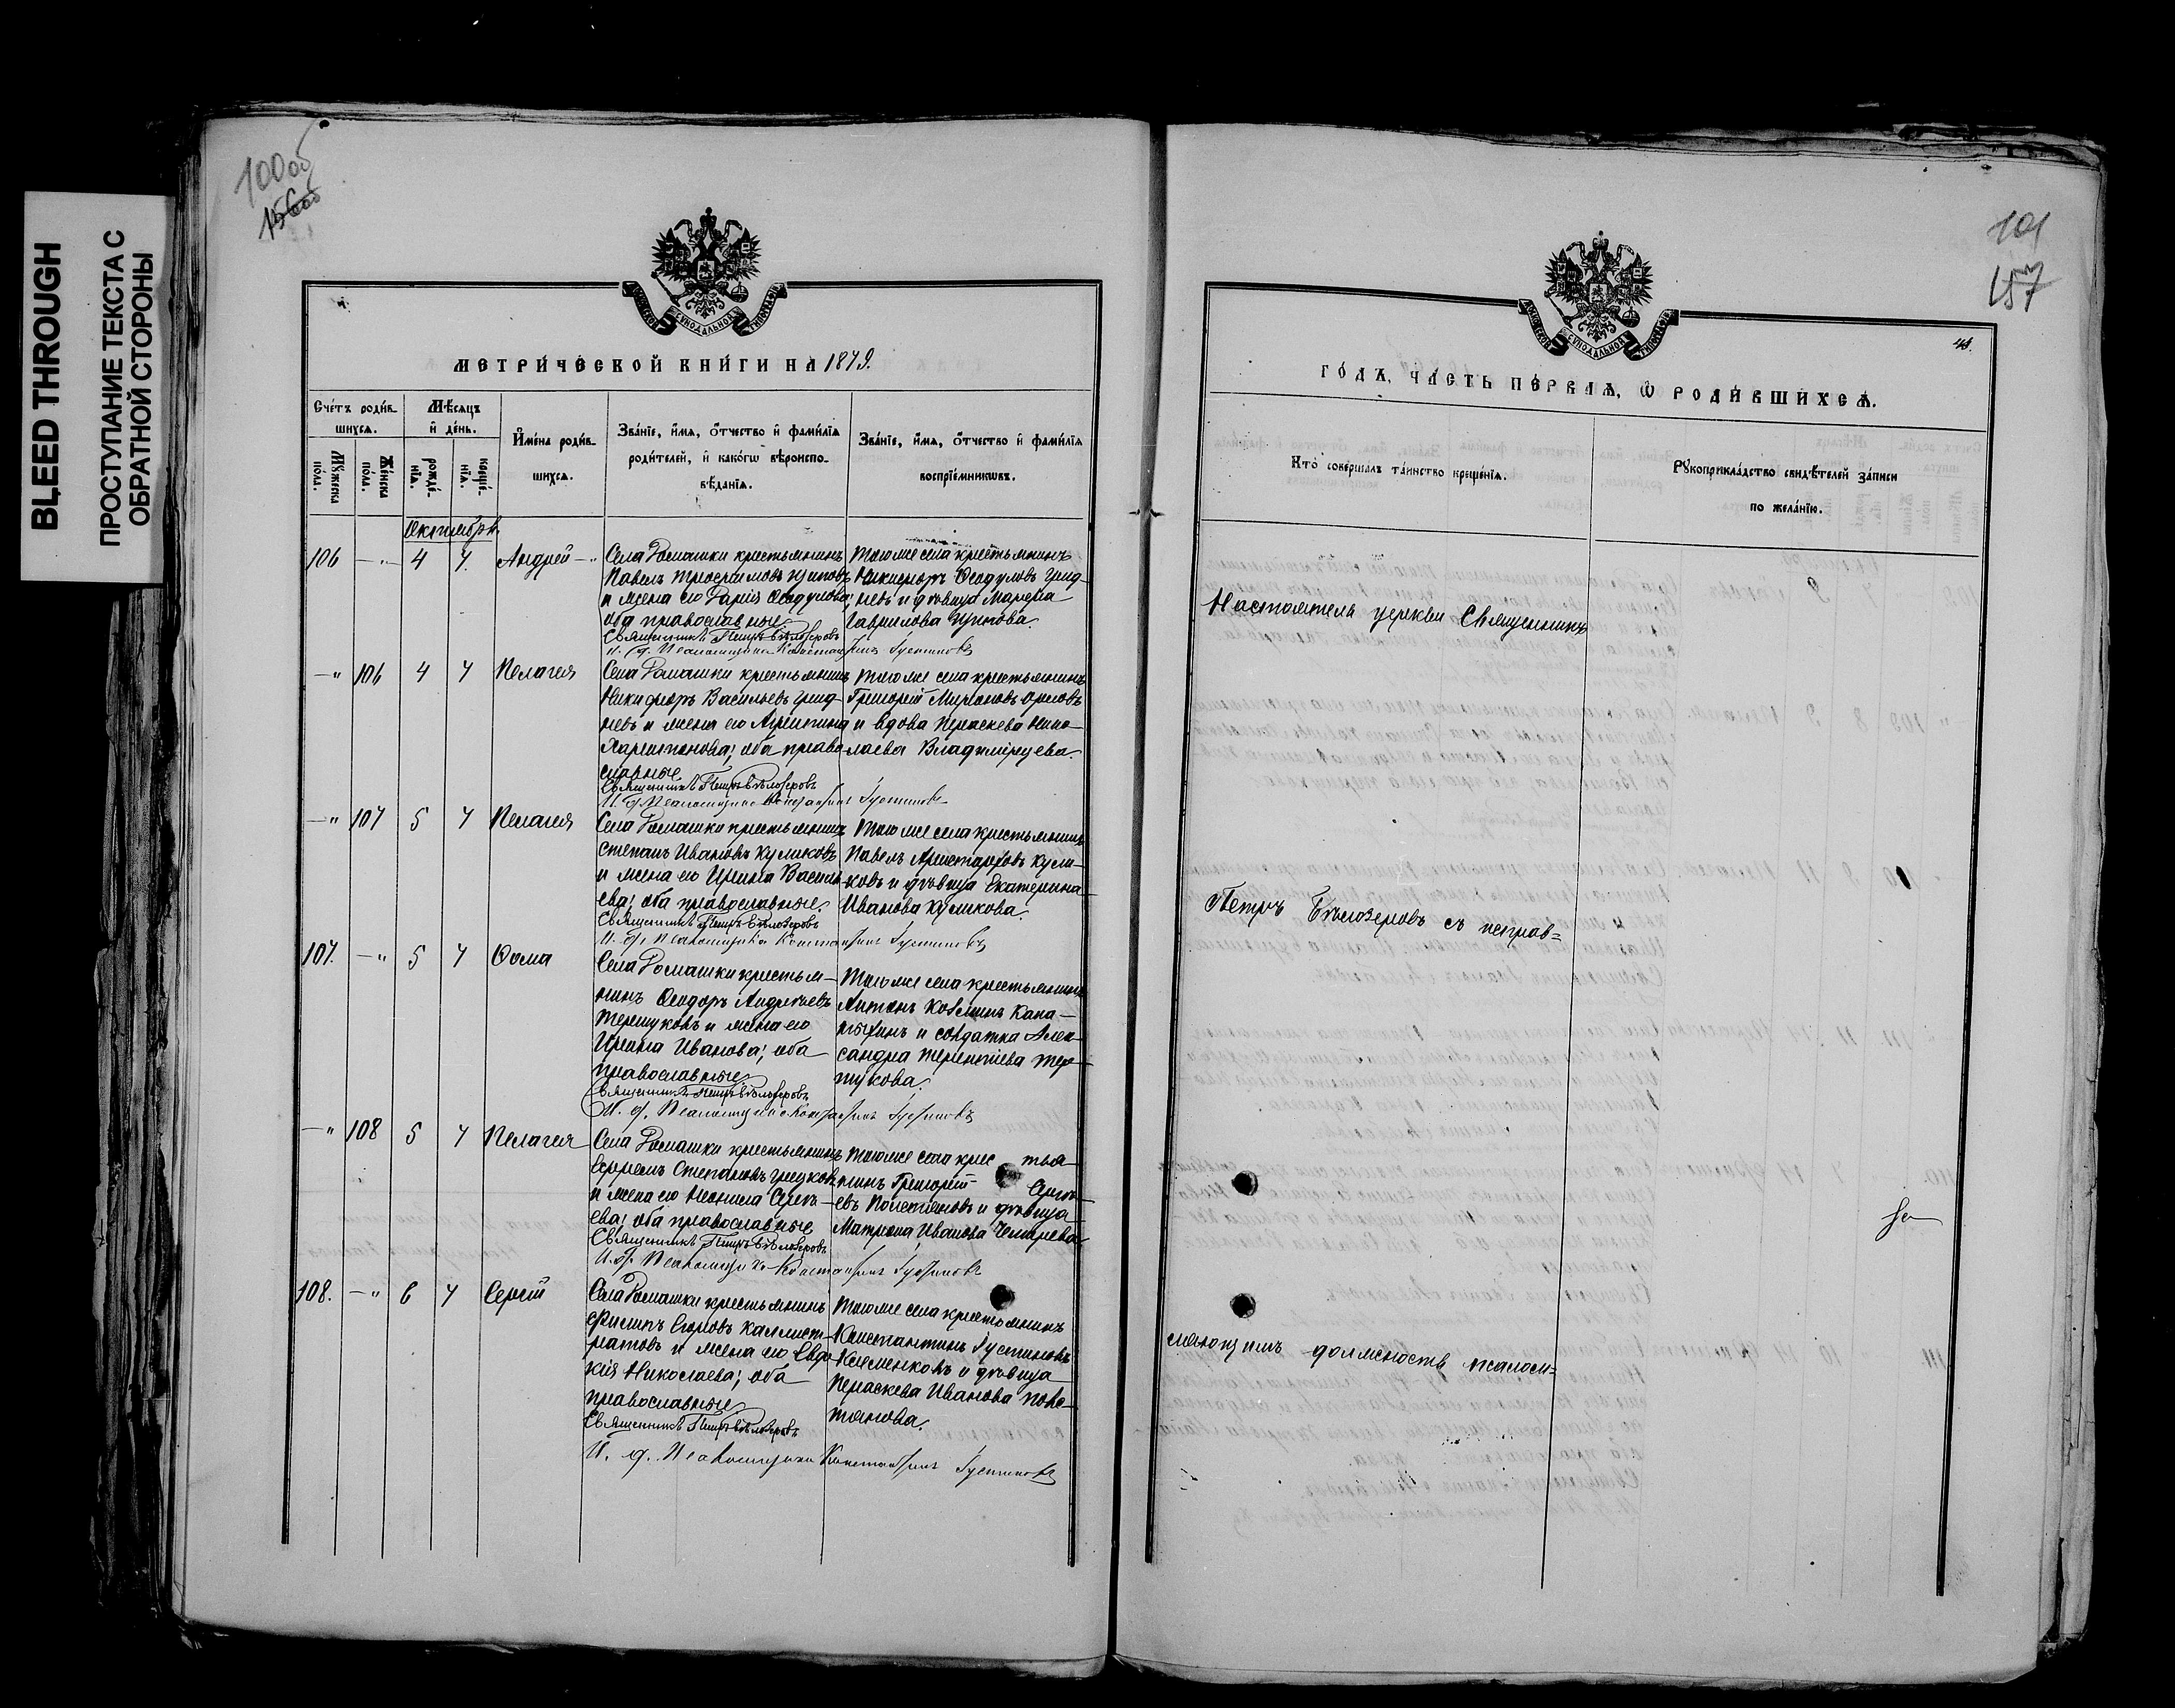 BLEED THROUGH
ПРОСТУПАНИЕ ТЕКСТА С
ОБРАТНОЙ СТОРОНЫ
100об
156об
МЕТРИ́ЧЕСКОЙ КНИ́ГИ НА 1879.
Сче́тъ роди́в-
шихся.
Мѣ́сяцъ
и҆ де́нь.
И҆мена̀ роди́в-
шихся.
Зва́нїе, и҆́мя, ѻ҆́тчество и҆ фами́лїѧ
роди́телей, и҆ како́гѡ вѣроиспо-
вѣ́данїѧ.
Зва́нїе, и҆́мя, ѻ҆́тчество и҆ фами́лїѧ
воспрїе́мникѡвъ.
Мꙋ́жеска
по́ла.
Же́нска
по́ла.
рожде́-
нїѧ.
креще́-
нїѧ.
Октябрь
106 —"— 4 7. Андрей —"
Села Ромашки крестьянинъ
Павелъ Трофимовъ
и жена его Дарія Ѳеодулова;
оба православные
Священникъ Петръ Бѣлозеровъ
И. д. Псаломщика Константинъ Густиновъ
тогоже села крестьянинъ
Никифоръ Ѳеодуловъ Грид-
невъ и дѣвица Марѳа
Гаврилова
—" 106 4 7 Пелагея
Села Ромашки крестьянинъ
Никифоръ Васильевъ Грид-
невъ и жена его Агрипина
Харитонова; оба право-
славные
Священникъ Петръ Бѣлозеровъ
И. д. Псаломщика Константинъ Густиновъ
тогоже села крестьянинъ
Григорій Мироновъ Орловъ
и вдова Параскева Нико-
лаева Владимірцева.
—" 107 5 7 Пелагея
Села Ромашки крестьянинъ
Степанъ Ивановъ Куликовъ
и жена его Ирина Василь-
ева; оба православные.
Священникъ Петръ Бѣлозеровъ
И. д. Псаломщика Константинъ Густиновъ
тогоже села крестьянинъ
Павелъ Аристарховъ Кули-
ковъ и дѣвица Екатерина
Иванова Куликова.
107. —" 5 7 Ѳома
Села Ромашки крестья-
нинъ Ѳеодоръ Андреевъ
Терпуковъ и жена его
Ирина Иванова; оба
православные
Священникъ Петръ Бѣлозеровъ
И. д. Псаломщика Константинъ Густиновъ
тогоже села крестьянинъ
Антонъ Козминъ Кана-
и солдатка Алек-
сандра Терентіева Тер-
пукова.
—" 108 5 7 Пелагея
Села Ромашки крестьянинъ
Ефремъ Степановъ
и жена его Неонила Сергѣ-
ева; оба православные
Священникъ Петръ Бѣлозеровъ
И. д. Псаломщика Константинъ Густиновъ
тогоже села крестья-
нинъ Григорій Сергѣ-
евъ и дѣвица
Матрона Иванова
108. —" 6 7 Сергій
Села Ромашки крестьянинъ
Филипъ Егоровъ Каллист-
ратовъ и жена его Евдо-
кія Николаева; оба
православные
Священникъ Петръ Бѣлозеровъ
И. д. Псаломщика Константинъ Густиновъ
тогоже села крестьянинъ
Константинъ Густиновъ
Клименковъ и дѣвица
Параскева Иванова
101
157
ГО́ДЪ, ЧА́СТЬ ПЕ́РВАѦ, Ѡ҆ РОДИ́ВШИХСѦ.
Кто̀ соверша́лъ та́инство креще́нїѧ.
Рꙋкоприкла́дство свидѣ́телей за́писи
по жела́нїю.
Настоятель церкви Священникъ
Петръ Бѣлозеровъ съ исправ=
ляющимъ должность псалом=